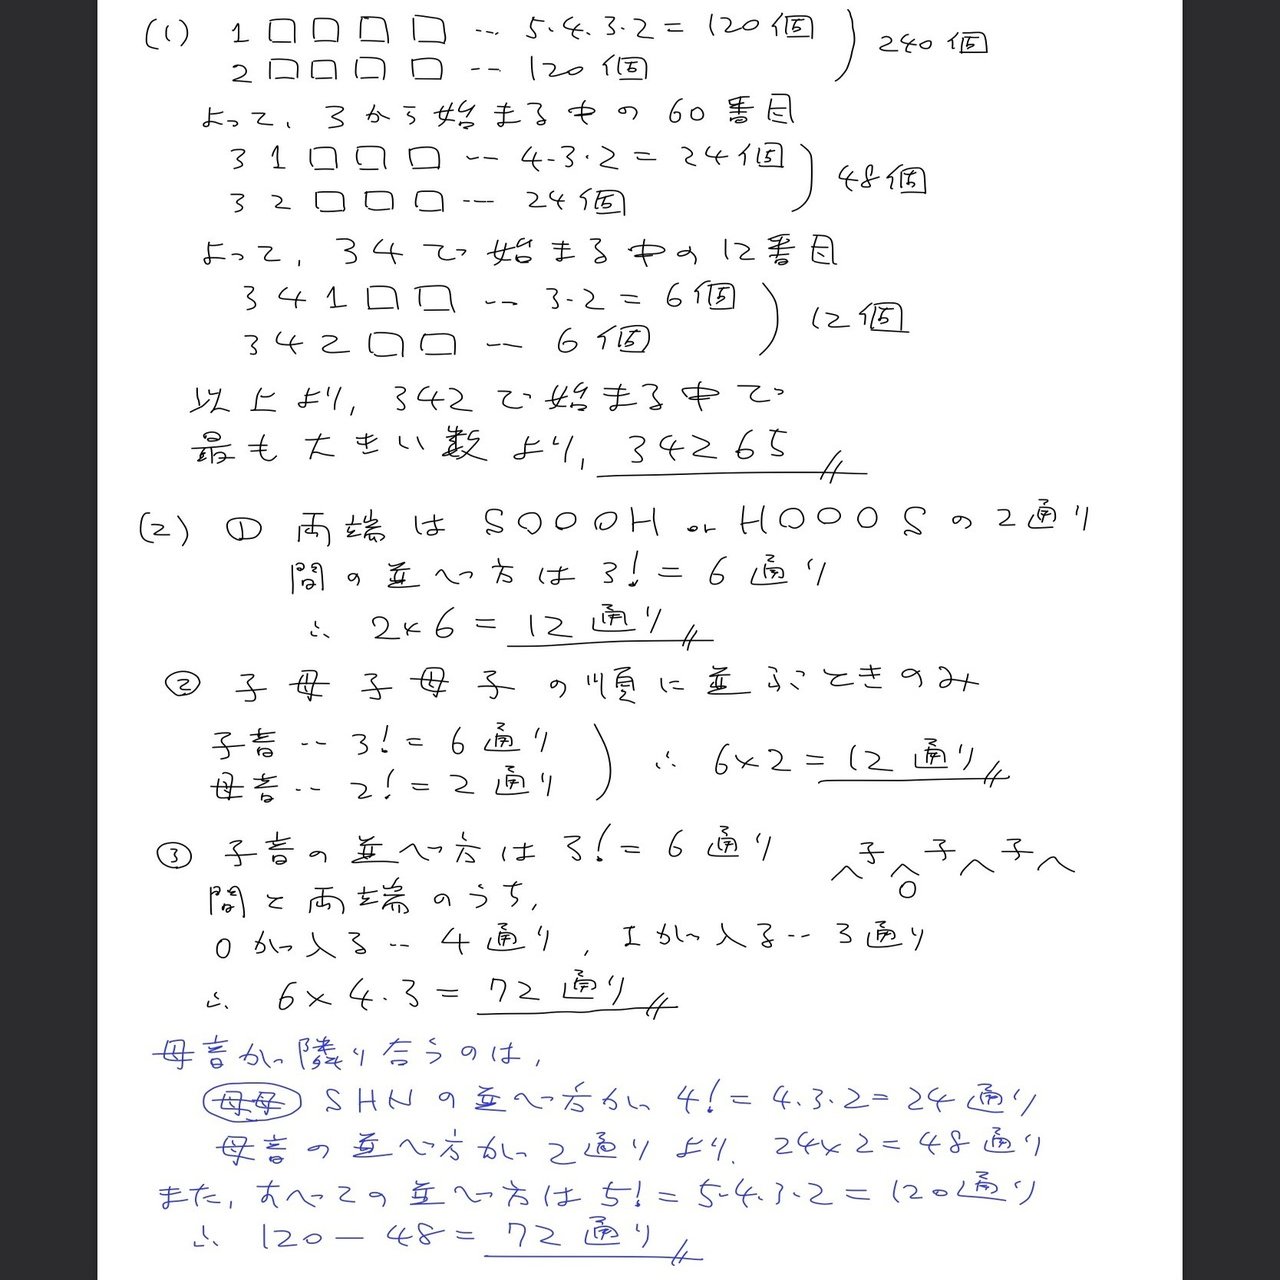 (1) 1□□□□ … 5・4・3・2 = 120個 ) 240個
2□□□□ … 120個
よって、3から始まる中の60番目
31□□□ … 4・3・2 = 24個 ) 48個
32□□□ … 24個
よって、34で始まる中の12番目
341□□ … 3・2 = 6個 ) 12個
342□□ … 6個
以上より、342で始まる中で
最も大きい数より、34265
(2) ① 両端は SOOOH or HOOOS の2通り
間の並べ方は 3! = 6通り
∴ 2×6 = 12通り
② 子母子母子の順に並ぶときのみ
子音 … 3! = 6通り ) ∴ 6×2 = 12通り
母音 … 2! = 2通り
③ 子音の並べ方は 3! = 6通り ^子^子^子^
O
間と両端のうち、
Oが入る … 4通り、Iが入る … 3通り
∴ 6×4・3 = 72通り
母音が隣り合うのは、
母母 SHNの並べ方が 4! = 4・3・2 = 24通り
母音の並べ方が2通りより、24×2 = 48通り
また、すべての並べ方は 5! = 5・4・3・2 = 120通り
∴ 120 − 48 = 72通り